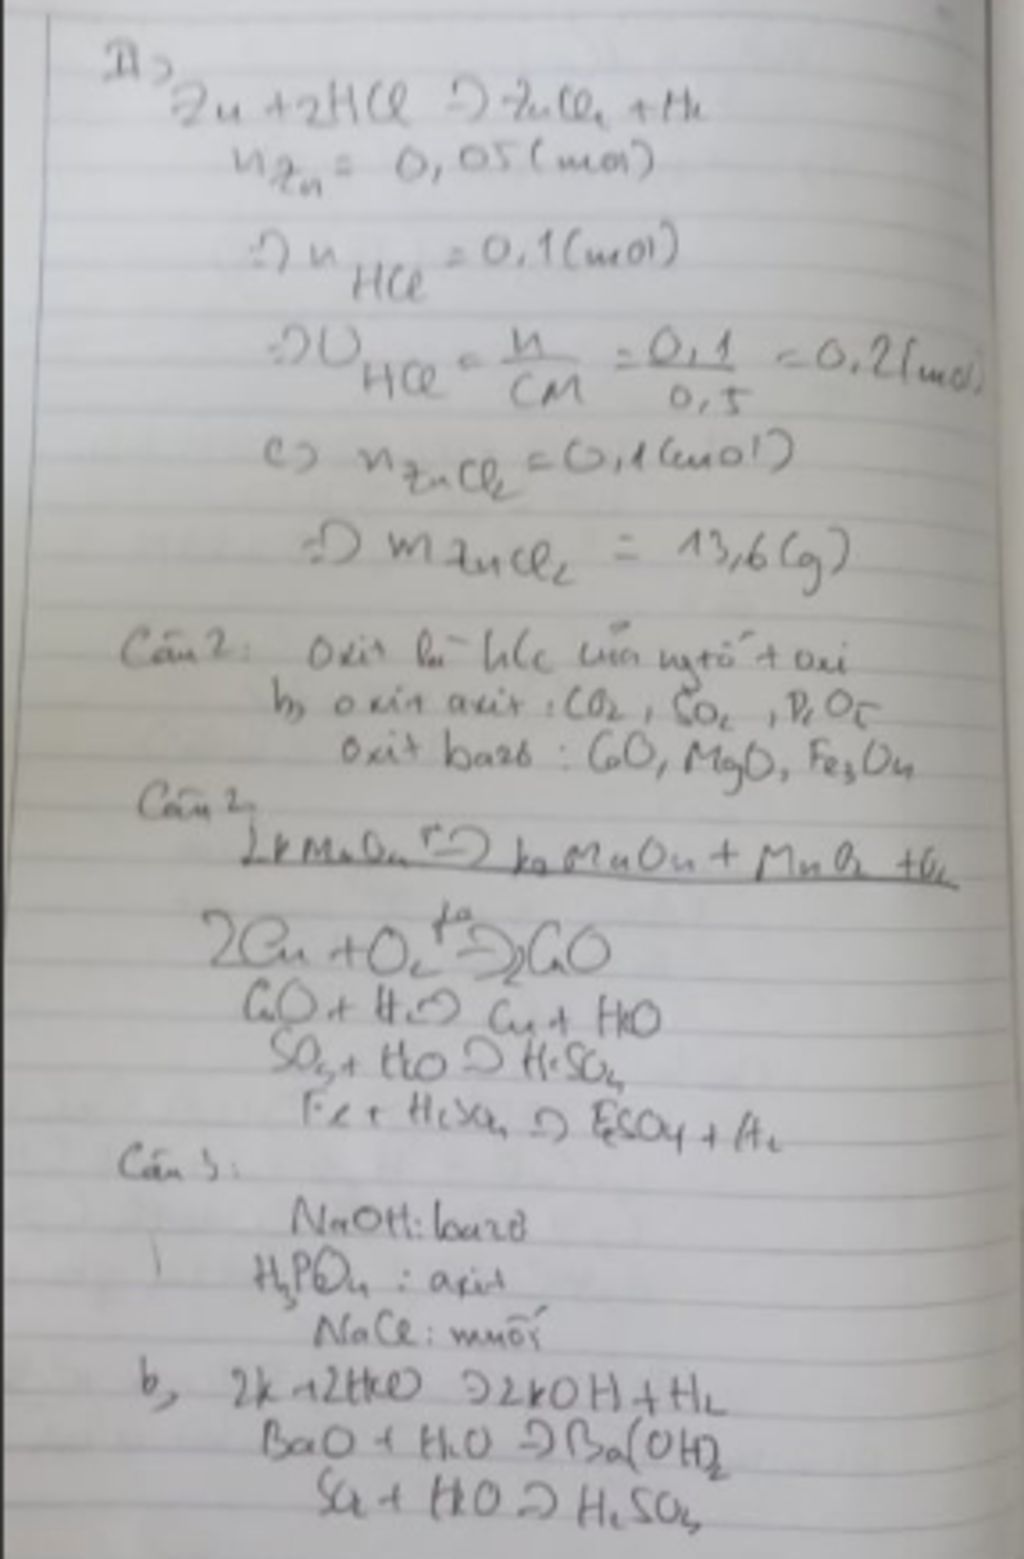 II>
Zn + 2HCl => ZnCl₂ + H₂
nZn = 0,05 (mol)
=> nHCl = 0,1 (mol)
=> VHCl = n/CM = 0,1/0,5 = 0,2 (mol)
c) nZnCl₂ = 0,1 (mol)
=> mZnCl₂ = 13,6 (g)
Câu 2: Oxit là h/c của ngtố + oxi
b, oxit axit : CO₂, SO₂, P₂O₅
oxit bazơ : CaO, MgO, Fe₃O₄
Câu 2,
2KMnO₄ t° => K₂MnO₄ + MnO₂ + O₂
2Cu + O₂ t° => 2CuO
CuO + H₂ => Cu + H₂O
SO₃ + H₂O => H₂SO₄
Fe + H₂SO₄ => FeSO₄ + H₂
Câu 3:
NaOH: bazơ
H₃PO₄ : axit
NaCl: muối
b, 2K + 2H₂O => 2KOH + H₂
BaO + H₂O => Ba(OH)₂
SO₂ + H₂O => H₂SO₃